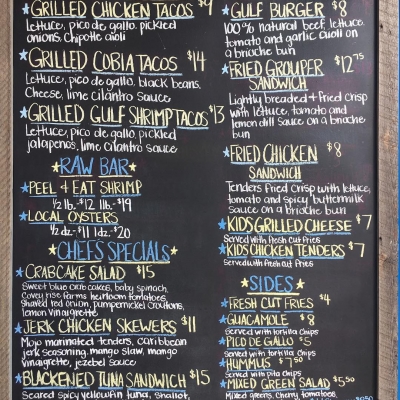 ★GRILLED CHICKEN TACOS $9
lettuce, pico de gallo, pickled
onions, Chipotle aioli
★GRILLED COBIA TACOS $14
Lettuce, pico de gallo, black beans,
Cheese, lime cilantro sauce
★GRILLED GULF SHRIMP TACOS $13
Lettuce, pico de gallo, pickled
jalapenos, lime cilantro sauce
★RAW BAR★
★PEEL & EAT SHRIMP
1/2 lb. $12 1 lb. $19
★LOCAL OYSTERS
1/2 dz. $11 1 dz. $20
★CHEFS SPECIALS★
★CRABCAKE SALAD $15
Sweet blue crab cakes, baby spinach,
Covey rise farms heirloom tomatoes,
Shaved red onion, pumpernickel croutons,
lemon vinaigrette
★JERK CHICKEN SKEWERS $11
Mojo marinated tenders, caribbean
jerk seasoning, mango slaw, mango
vinaigrette, jezebel sauce
★BLACKENED TUNA SANDWICH $15
Seared spicy yellowfin tuna, shallot,
★GULF BURGER $8
100% natural beef, lettuce,
tomato and garlic aioli on
a brioche bun
★FRIED GROUPER $12.75
SANDWICH
Lightly breaded & Fried crisp
with lettuce, tomato and
lemon dill sauce on a brioche
bun
★FRIED CHICKEN $8
SANDWICH
Tenders Fried Crisp with lettuce,
tomato and spicy buttermilk
sauce on a brioche bun
★KIDS GRILLED CHEESE $7
Served with Fresh Cut Fries
★KIDS CHICKEN TENDERS $7
Served with Fresh Cut Fries
★SIDES★
★FRESH CUT FRIES $4
★GUACAMOLE $8
Served with tortilla Chips
★PICO DE GALLO $5
Served with tortilla Chips
★HUMMUS $7.50
Served with pita Chips
★MIXED GREEN SALAD $5.50
Mixed greens, Cherry tomatoes,